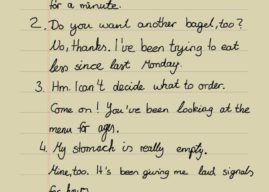 for a minute.
2. Do you want another bagel, too?
No, thanks. I've been trying to eat
less since last Monday.
3. Hm. I can't decide what to order.
Come on! You've been looking at the
menu for ages.
4. My stomach is really empty.
Mine, too. It's been giving me loud signals
for hours